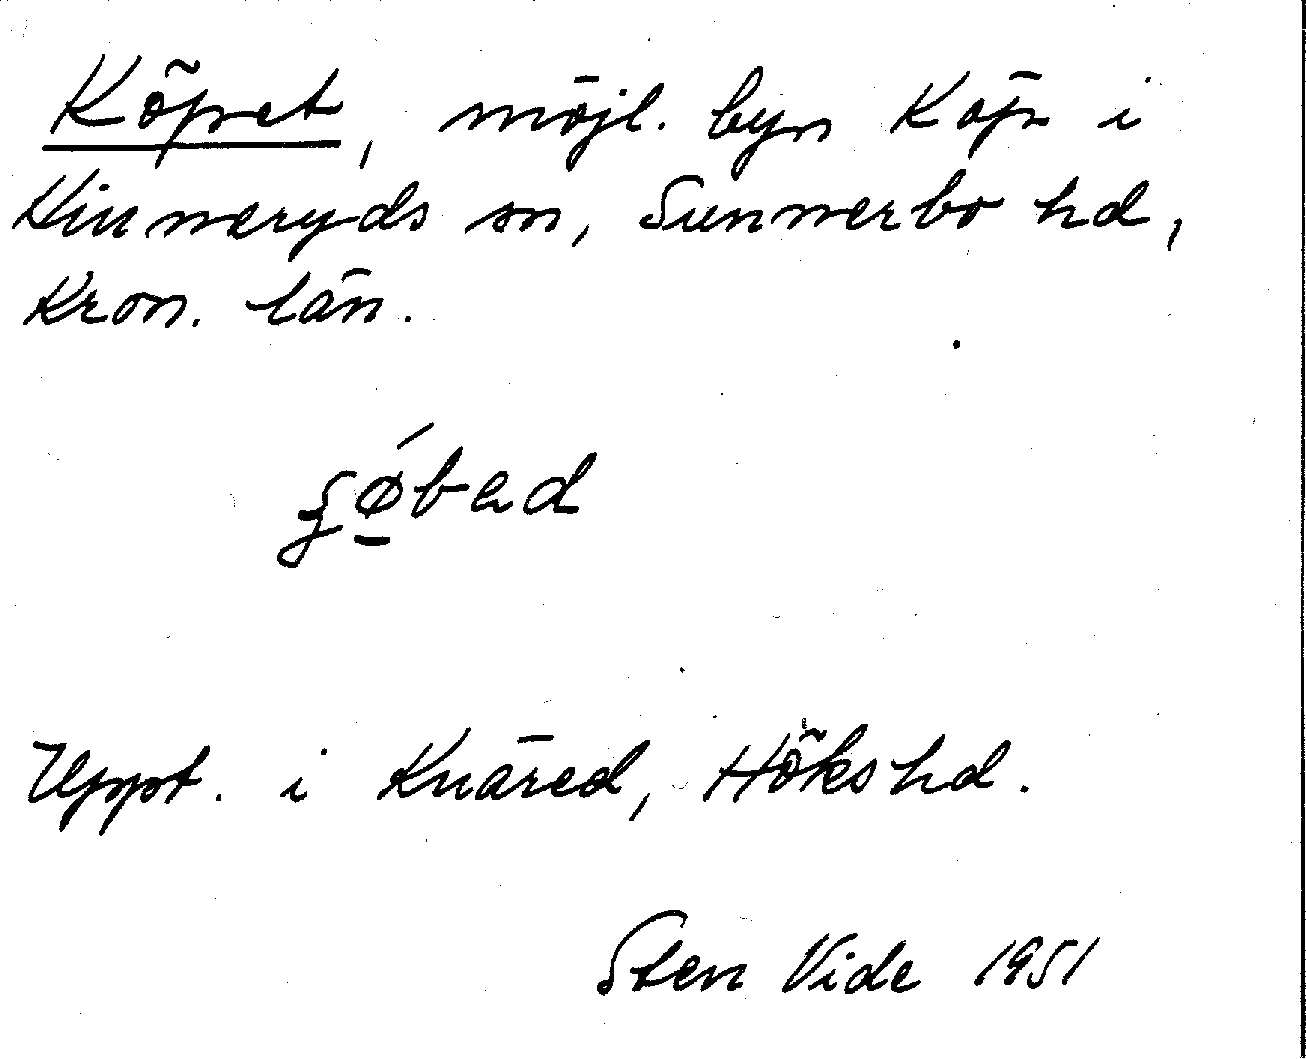 Köpet, möjl. byn Köp i
Hinneryds sn, Sunnerbo hd,
Kron. län.
Uppt. i Knäred, Höks hd.
Sten Vide 1951